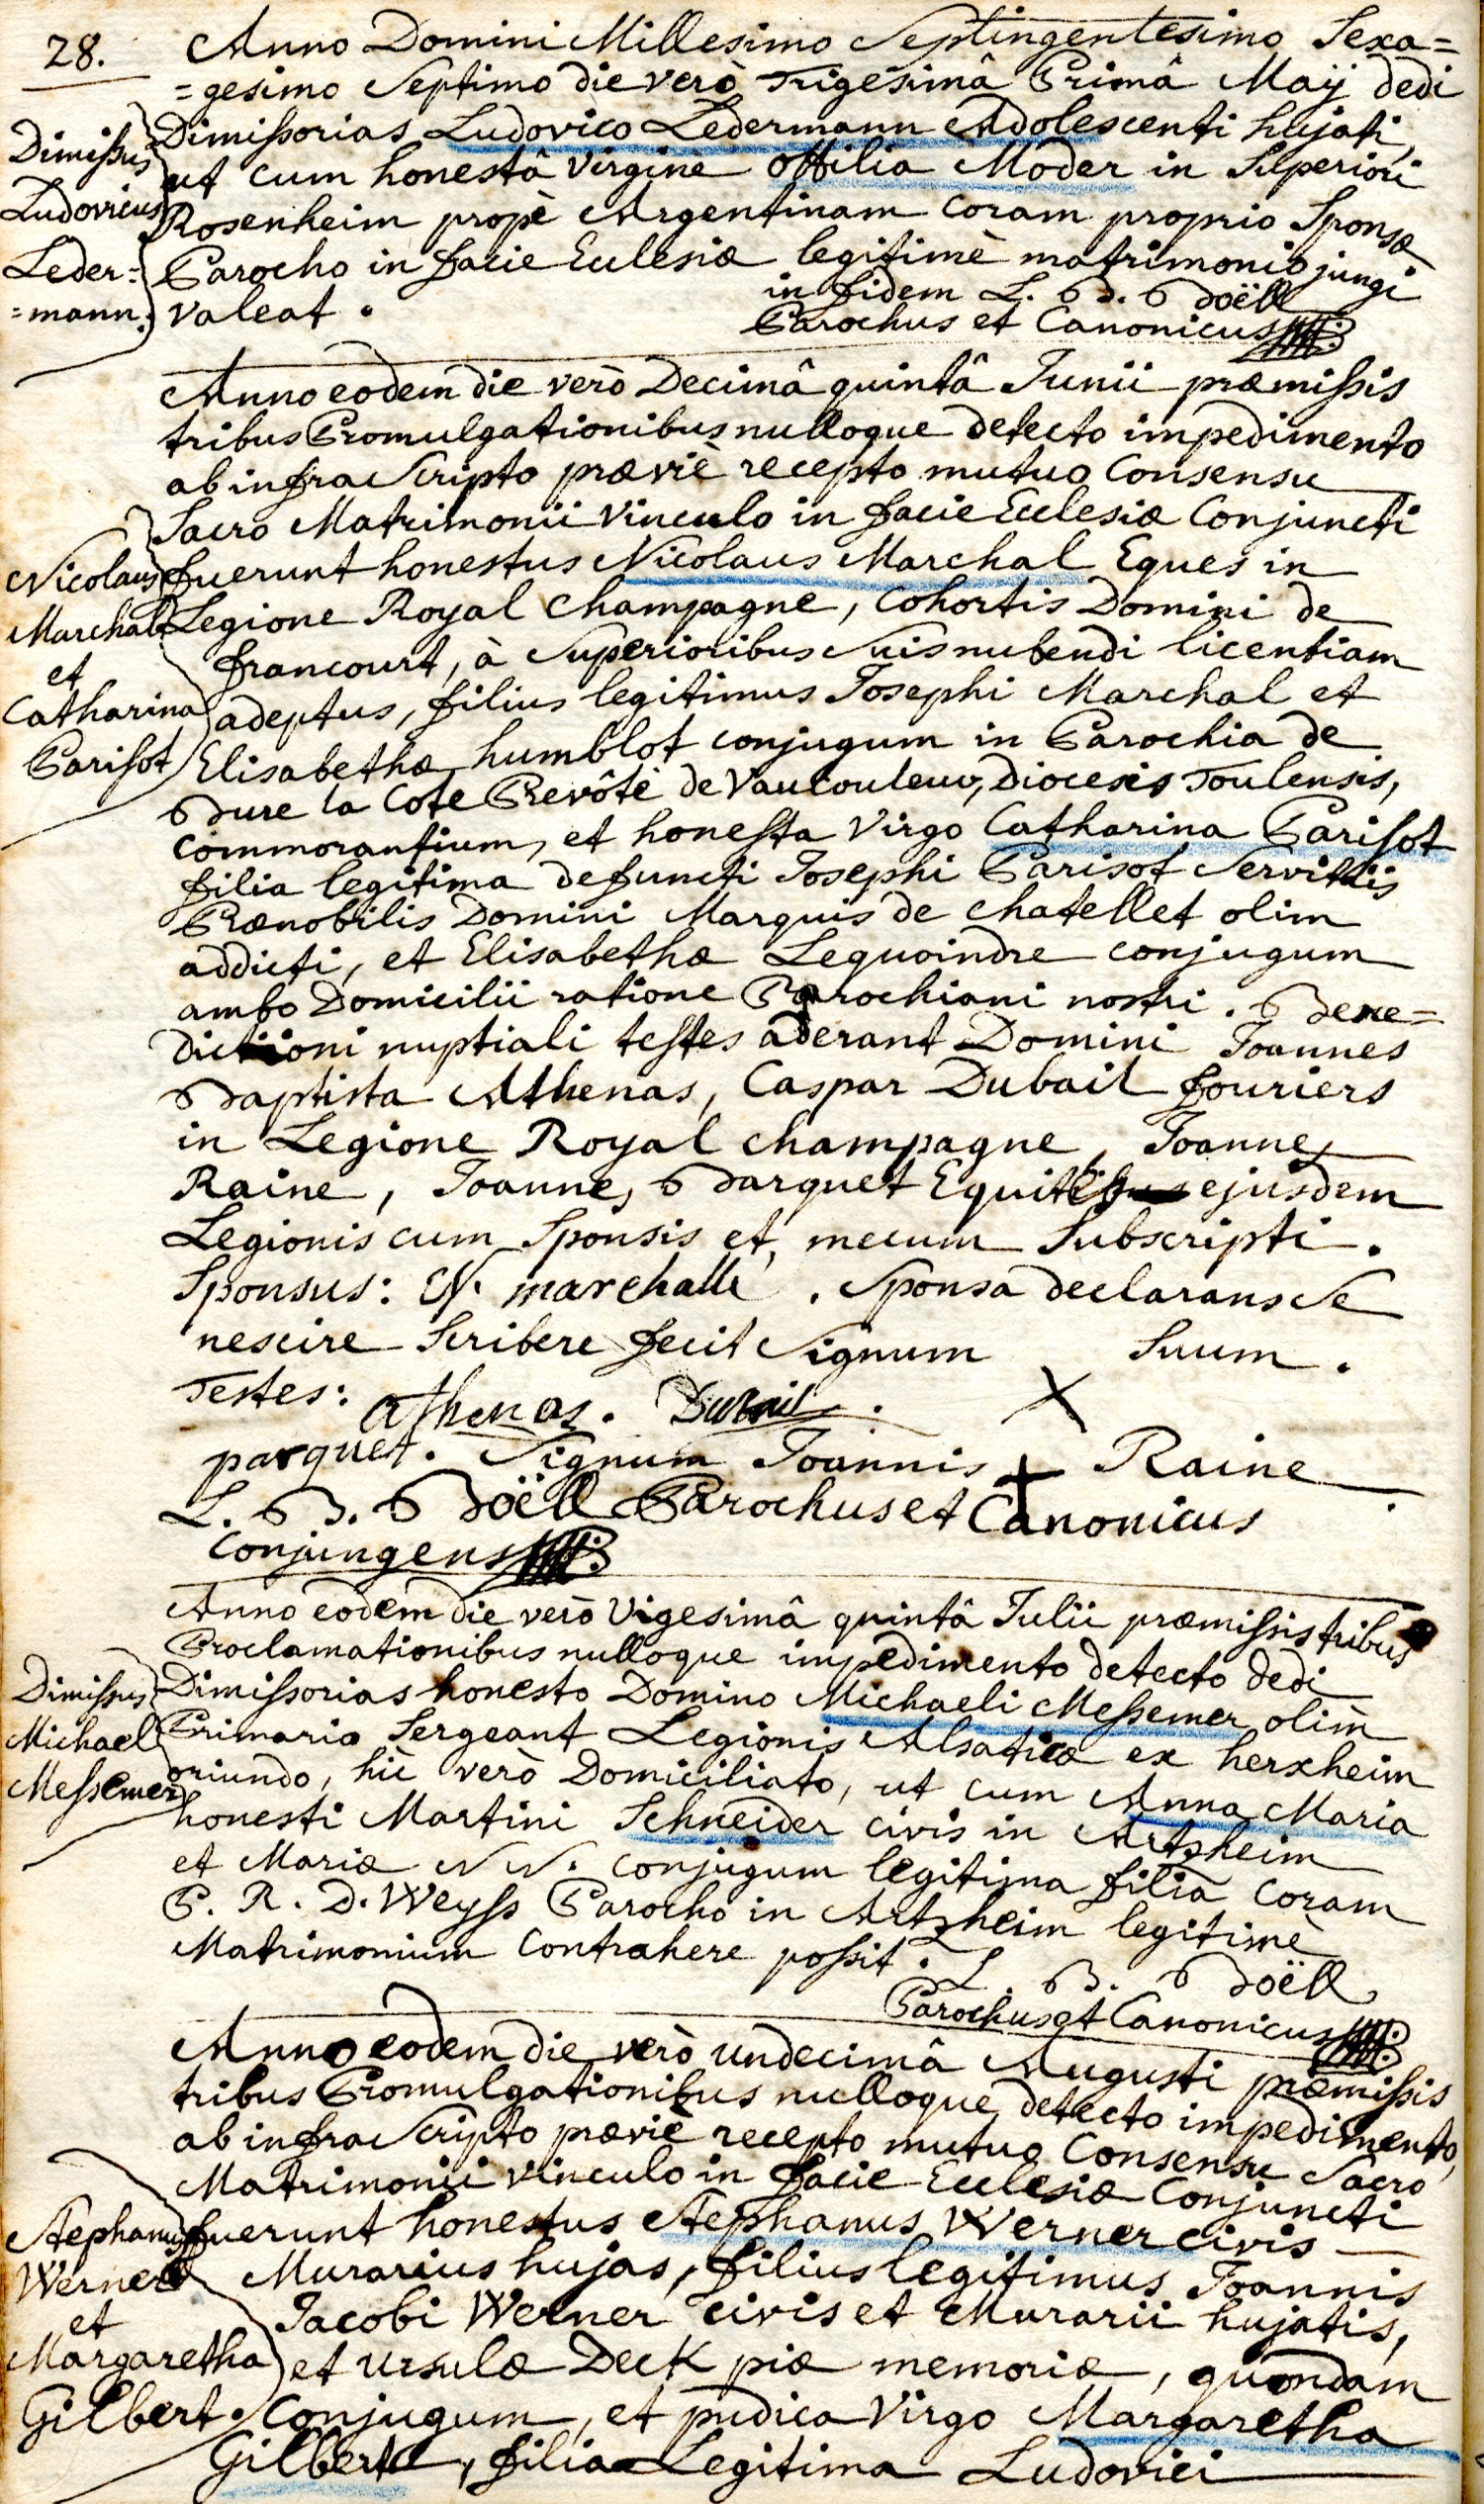 28.
Anno Domini Millesimo Septingentesimo Sexa=
=gesimo Septimo die verò Trigesimâ Primâ Maÿ dedi
Dimissorias Ludovico Ledermann Adolescenti hujati,
ut cum honestâ virgine Ottilia Moder in Superiori
Rosenheim propè Argentinam coram proprio Sponsæ
Parocho in facie Eclesiæ legitimè matrimonio jungi
valeat.
in fidem L. B. Boëll
Parochus et Canonicus
Dimissus
Ludovicus
Leder=
=mann.
Anno eodem die verò Decimâ quintâ Junii præmissis
tribus Promulgationibus nulloque detecto impedimento
ab infra Scripto præviè recepto mutuo Consensu
Sacro Matrimonii Vinculo in facie Ecclesiæ Conjuncti
fuerunt honestus Nicolaus Marchal Eques in
Legione Royal Champagne, Cohortis Domini de
francourt, à Superioribus Suis nubendi licentiam
adeptus, filius legitimus Josephi Marchal et
Elisabethæ humblot conjugum in Parochia de
Bure la Cote Prevôté de Vaucouleur, Diocesis Toulensis,
commorantium, et honesta Virgo Catharina Parisot
filia legitima defuncti Josephi Parisot Servitiis
Prænobilis Domini Marquis de Chatellet olim
addicti, et Elisabethæ Lequoindre conjugum
ambo Domicilii ratione Parochiani nostri. Bene=
dictioni nuptiali testes aderant Domini Joannes
Baptista Athenas, Caspar Dubail fouriers
in Legione Royal champagne, Joannes
Raine, Joannes Barquet Equites ejusdem
Legionis cum Sponsis et mecum Subscripti.
Sponsus: N. marchalle. Sponsa declarans Se
nescire Scribere fecit Signum Suum.
X
Testes: athenas. Dubail.
parquet. Signum Joannis + Raine
L. B. Boëll Parochus et Canonicus
Conjungens
Nicolaus
Marchal
et
Catharina
Parisot
Anno eodem die verò Vigesimâ quintâ Julii præmissis tribus
Proclamationibus nulloque impedimento detecto dedi
Dimissorias honesto Domino Michaeli Messemer olim
Primario Sergeant Legionis Alsaticæ ex herxheim
oriundo, hìc verò Domiciliato, ut cum Anna Maria
honesti Martini Schneider civis in Artzheim
et Mariæ N N. conjugum legitima filia coram
P. R. D. Weyss Parocho in Artzheim legitimè
Matrimonium Contrahere possit. L. B. Boëll
Parochus et Canonicus
Dimissus
Michael
Messemer
Anno eodem die verò undecimâ Augusti præmissis
tribus Promulgationibus nulloque detecto impedimento,
ab infra Scripto præviè recepto mutuo Consensu Sacro
Matrimonii vinculo in facie Ecclesiæ Conjuncti
fuerunt honestus Stephanus Werner civis
Murarius hujas, filius legitimus Joannis
Jacobi Werner civis et Murarii hujatis,
et ursulæ Deck piæ memoriæ, quondam
Conjugum, et pudica Virgo Margaretha
Gilbert, filia Legitima Ludovici
Stephanus
Werner
et
Margaretha
Gilbert.